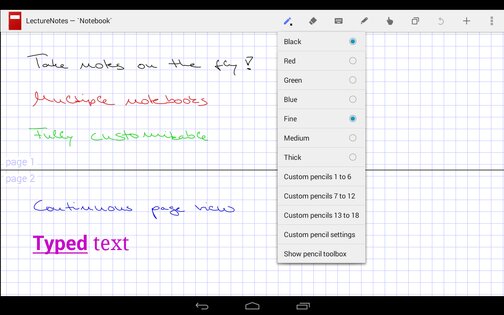 LectureNotes – `Notebook´
Take notes on the fly!
Multiple notebooks
Fully customizable
page 1
page 2
Continuous page view
Typed text
Black
Red
Green
Blue
Fine
Medium
Thick
Custom pencils 1 to 6
Custom pencils 7 to 12
Custom pencils 13 to 18
Custom pencil settings
Show pencil toolbox